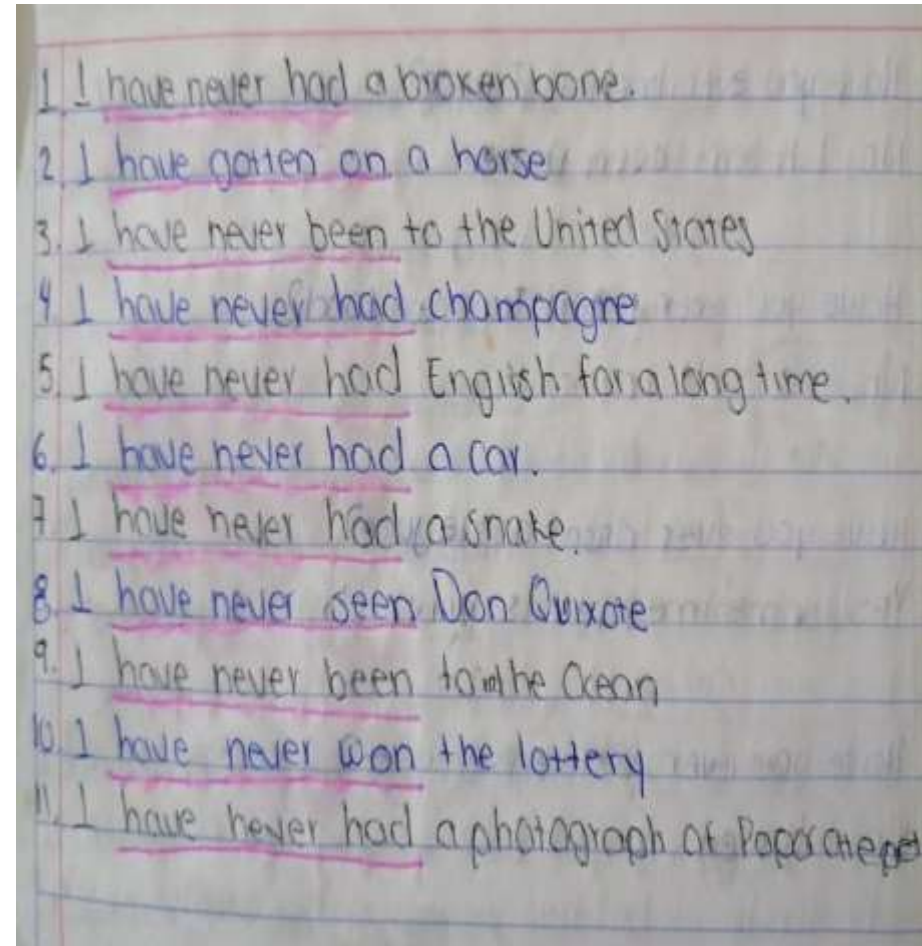 1. I have never had a broken bone.
2. I have gotten on a horse
3. I have never been to the United States
4. I have never had champagne
5. I have never had English for a long time.
6. I have never had a car.
7. I have never had a snake.
8. I have never seen Don Quixote
9. I have never been to the Ocean
10. I have never won the lottery
11. I have never had a photograph at